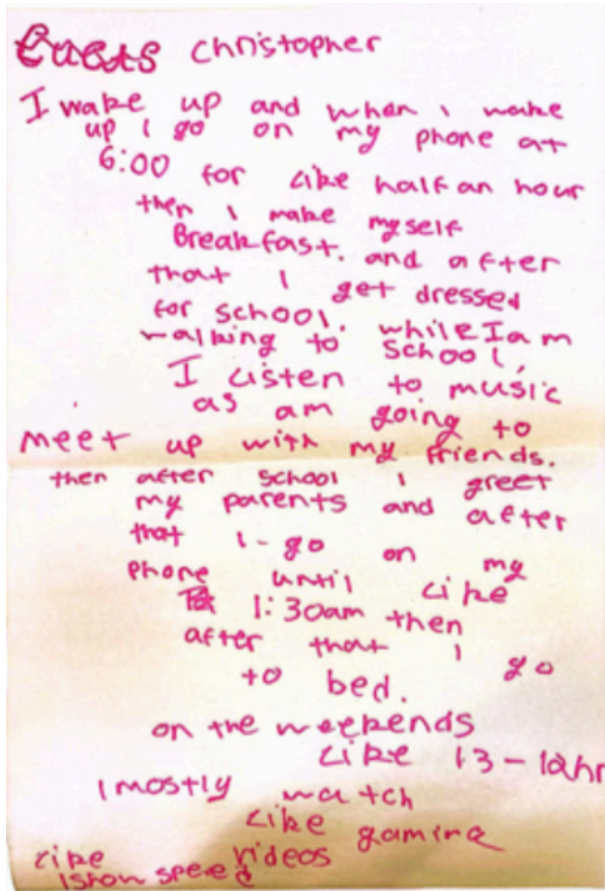 christopher
I wake up and when i wake
up i go on my phone at
6:00 for like half an hour
then i make myself
Breakfast. and after
that i get dressed
for school. while I am
walking to school,
I listen to music
as am going to
meet up with my friends.
then after school i greet
my parents and after
that i - go on my
phone until like
1:30am then
after that i go
to bed.
on the weekends
like 13-12hr
i mostly watch
like gaming
like videos
ishow speed